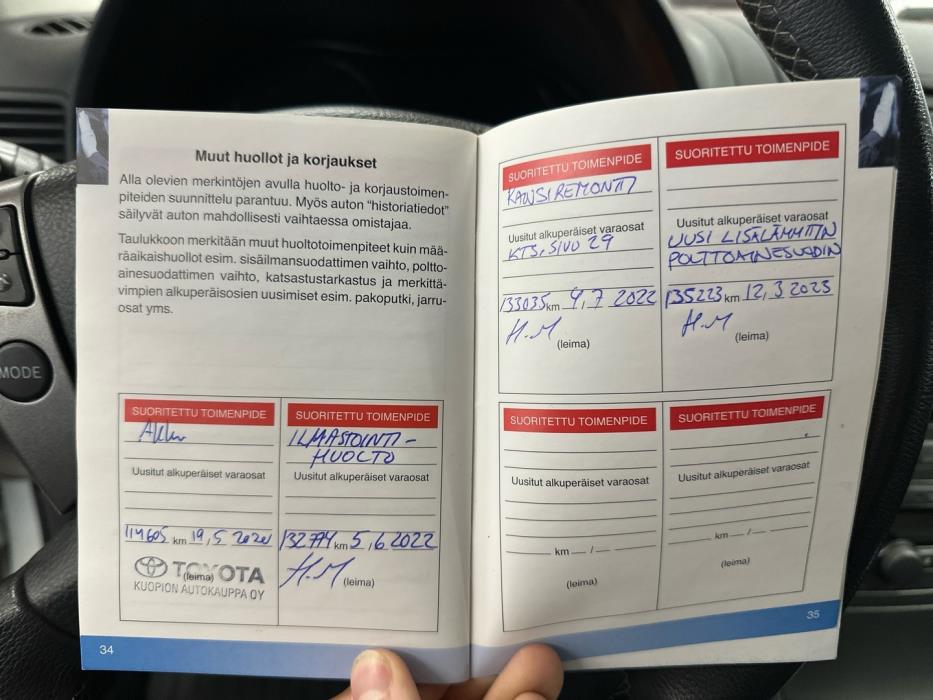 MODE
Muut huollot ja korjaukset
Alla olevien merkintöjen avulla huolto- ja korjaustoimen-
piteiden suunnittelu parantuu. Myös auton "historiatiedot"
säilyvät auton mahdollisesti vaihtaessa omistajaa.
Taulukkoon merkitään muut huoltotoimenpiteet kuin mää-
räaikaishuollot esim. sisäilmansuodattimen vaihto, poltto-
ainesuodattimen vaihto, katsastustarkastus ja merkittä-
vimpien alkuperäisosien uusimiset esim. pakoputki, jarru-
osat yms.
SUORITETTU TOIMENPIDE
Akku
Uusitut alkuperäiset varaosat
114605 km 19,5 2020
(leima)
TOYOTA
KUOPION AUTOKAUPPA OY
SUORITETTU TOIMENPIDE
ILMASTOINTI-
HUOLTO
Uusitut alkuperäiset varaosat
132774 km 5,6 2022
H.M (leima)
34
SUORITETTU TOIMENPIDE
KANSIREMONTTI
Uusitut alkuperäiset varaosat
KTS, SIVU 29
133035 km 9,7 2022
H.M
(leima)
SUORITETTU TOIMENPIDE
Uusitut alkuperäiset varaosat
UUSI LISÄLÄMMITTIN
POLTTOAINESUODIN
135223 km 12,3 2023
H.M
(leima)
SUORITETTU TOIMENPIDE
Uusitut alkuperäiset varaosat
km / 
(leima)
SUORITETTU TOIMENPIDE
Uusitut alkuperäiset varaosat
km /
(leima)
35